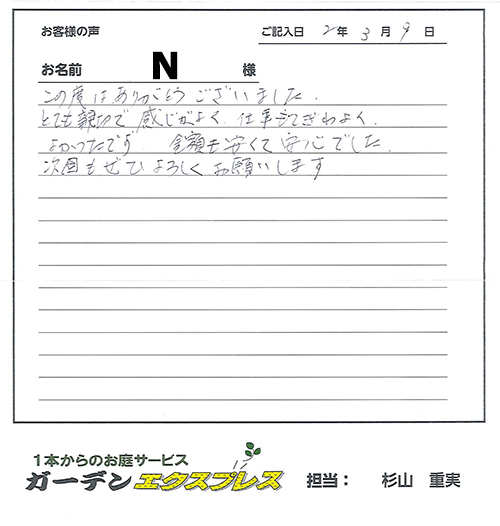 お客様の声 ご記入日 2年 3月 9日
お名前 N 様
この度はありがとうございました.
とても親切で 感じがよく 仕事もてぎわよく.
よかったです. 金額も安くて安心でした.
次回もぜひよろしくお願いします
1本からのお庭サービス
ガーデンエクスプレス 担当： 杉山 重実